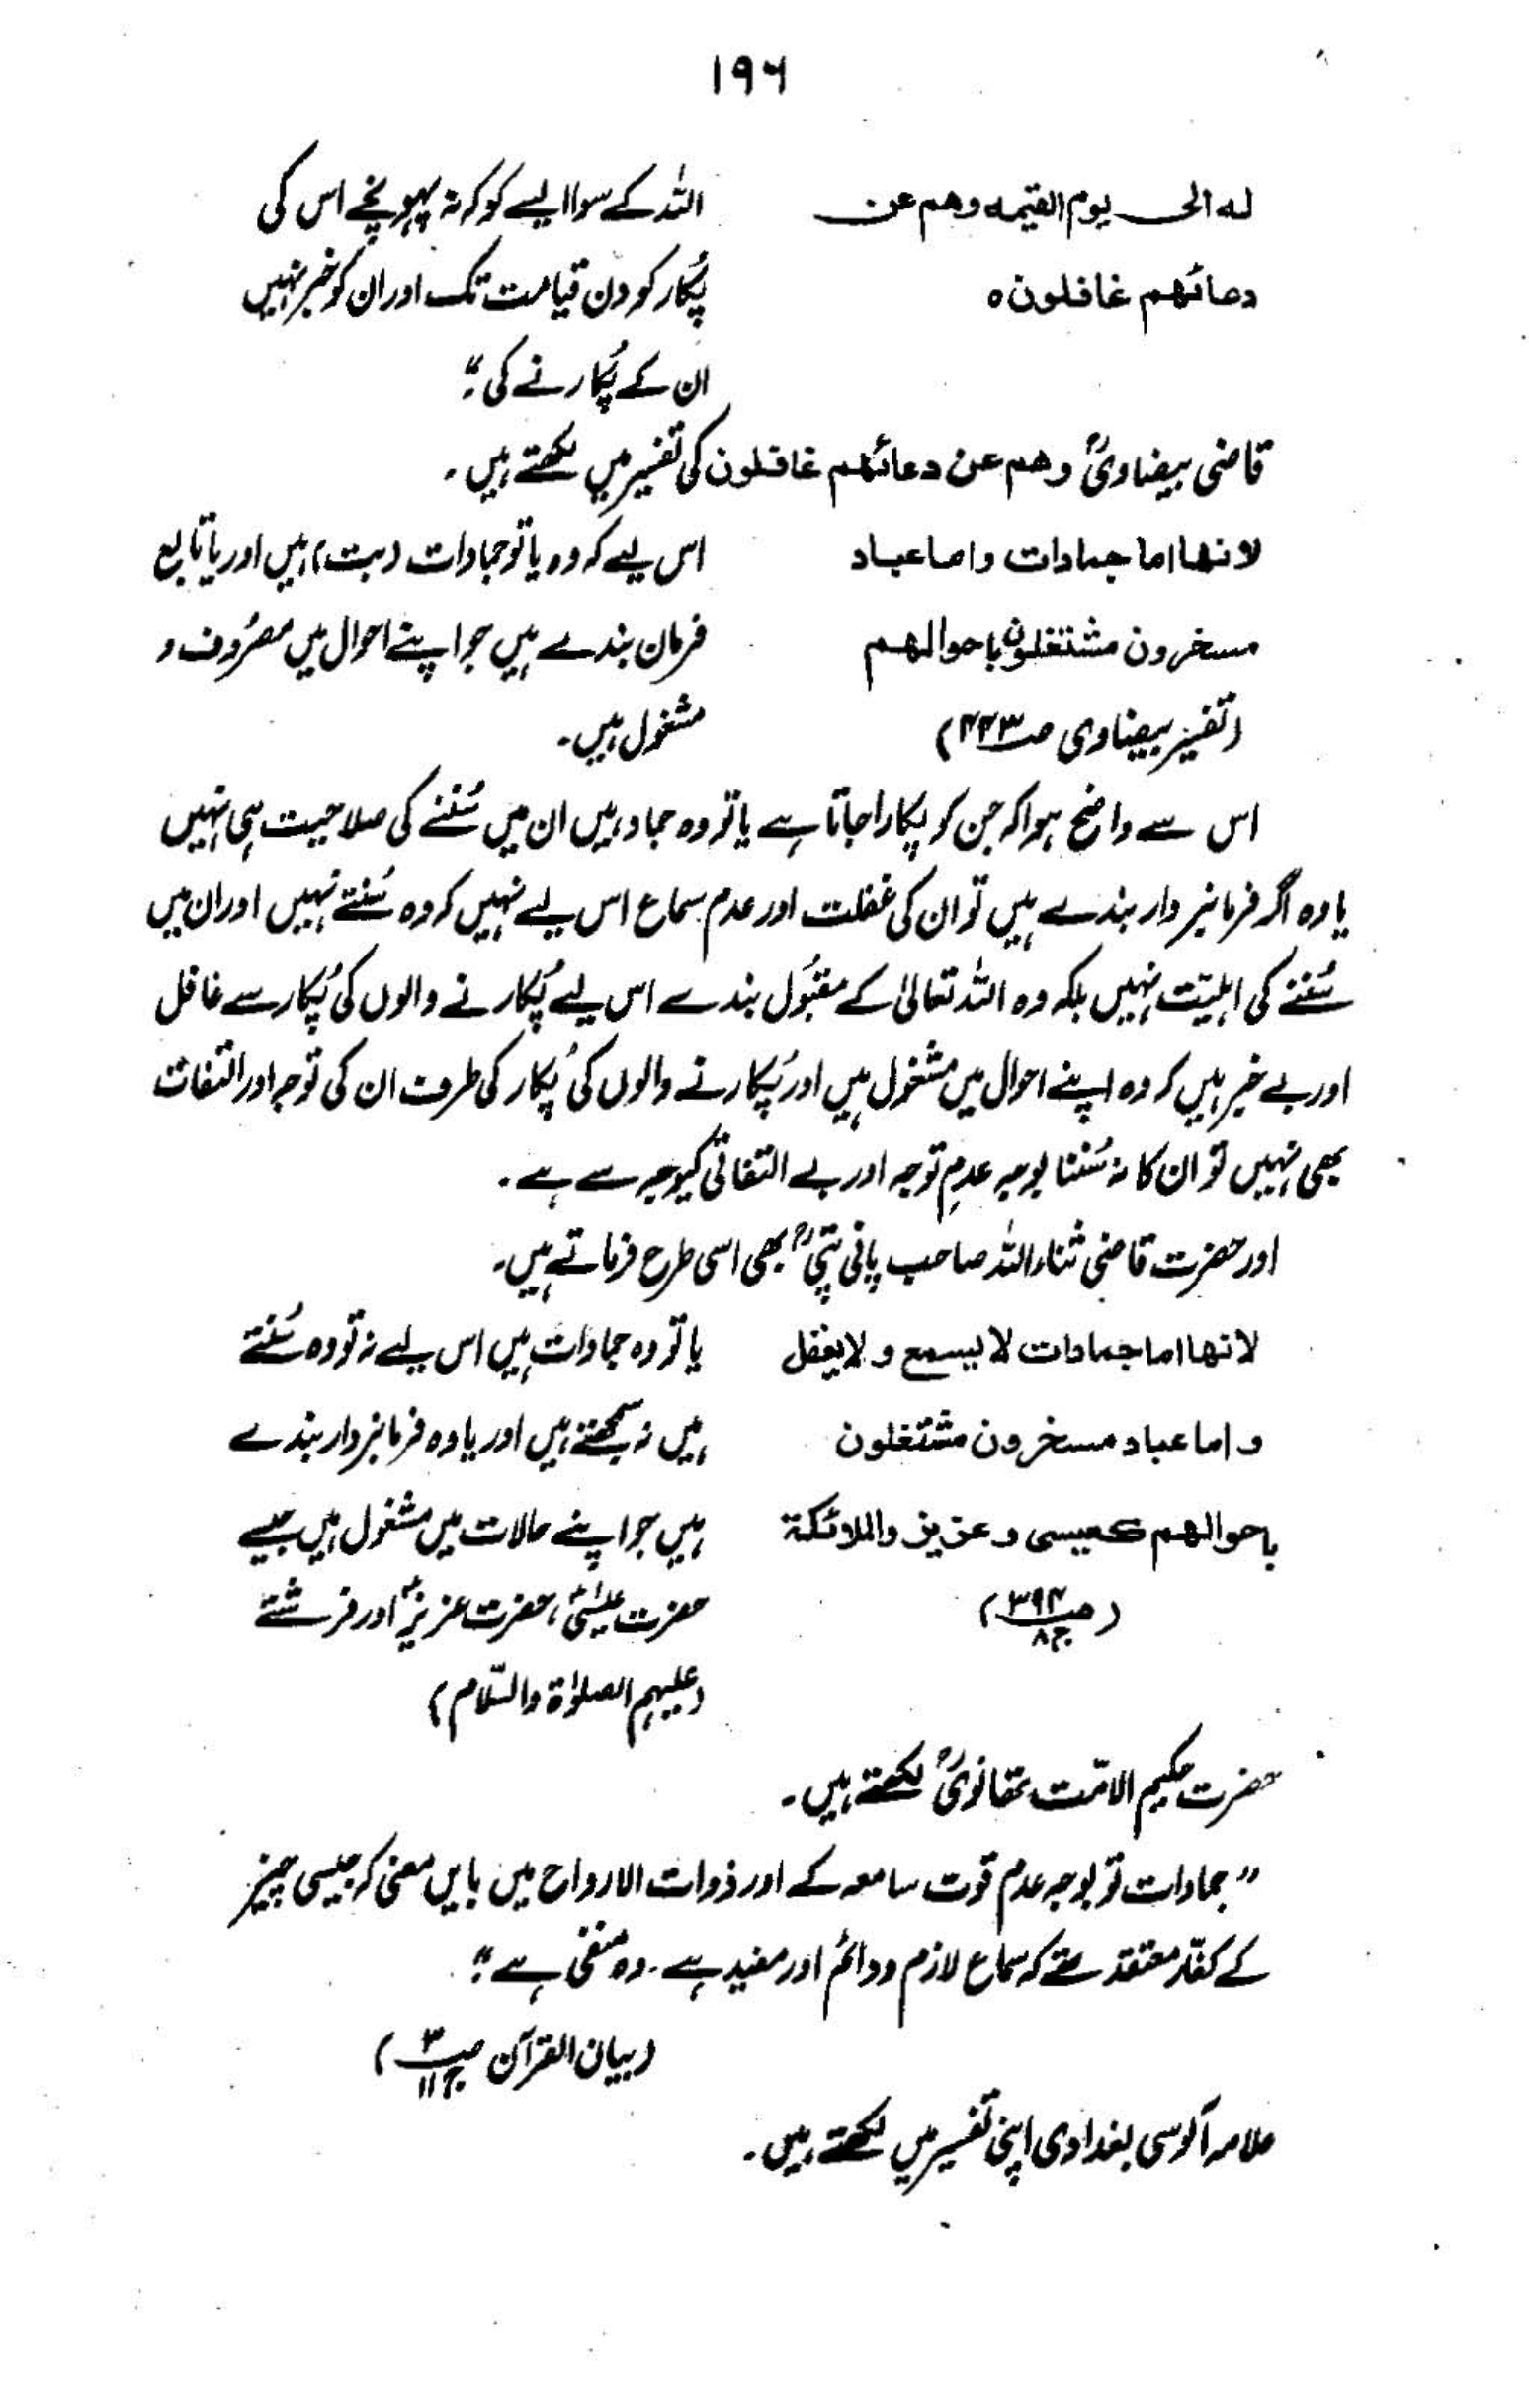 ۱۹۶
له الى يوم القيمه وهم عن
دعائهم غافلون ہ
اللہ کے سوا ایسے کو کہ نہ پہونچے اس کی
پُکار کو دن قیامت تک اور ان کو خبر نہیں
ان کے پُکارنے کی؛"
قاضی بیضاویؒ وهم عن دعائهم غافلون کی تفسیر میں لکھتے ہیں۔
لانها اما جمادات واما عباد
مسخرون مشتغلون باحوالهم
(تفسیر بیضاوی صـ ۴۲۳)
اس لیے کہ وہ یا تو جمادات (بت) ہیں اور یا تابع
فرمان بندے ہیں جو اپنے احوال میں مصرُوف و
مشغول ہیں۔
اس سے واضح ہوا کہ جن کو پکارا جاتا ہے یا تو وہ جماد ہیں ان میں سُننے کی صلاحیت ہی نہیں
یا وہ اگر فرمانبردار بندے ہیں تو ان کی غفلت اور عدم سماع اس لیے نہیں کہ وہ سُنتے نہیں اور ان میں
سُننے کی اہلیّت نہیں بلکہ وہ اللہ تعالیٰ کے مقبُول بندے اس لیے پُکارنے والوں کی پُکار سے غافل
اور بے خبر ہیں کہ وہ اپنے احوال میں مشغول ہیں اور پُکارنے والوں کی پُکار کی طرف ان کی توجہ اور التفات
بھی نہیں تو ان کا نہ سُننا بوجہ عدمِ توجہ اور بے التفاتی کیوجہ سے ہے۔
اور حضرت قاضی ثناء اللہ صاحب پانی پتیؒ بھی اسی طرح فرماتے ہیں۔
لانها اما جمادات لا یسمع و لا یعقل
و اما عباد مسخرون مشتغلون
باحوالهم كعيسى و عزيز والملائكة
(صـ ۳۹۴ ج ۸)
یا تو وہ جمادات ہیں اس لیے نہ تو وہ سُنتے
ہیں نہ سمجھتے ہیں اور یا وہ فرمانبردار بندے
ہیں جو اپنے حالات میں مشغول ہیں جیسے
حضرت عیسٰیؑ، حضرت عزیزؑ اور فرشتے
(علیہم الصلوٰۃ والسّلام)
حضرت حکیم الامّت تھانویؒ لکھتے ہیں۔
"جمادات تو بوجہ عدم قوت سامعہ کے اور ذوات الارواح میں بایں معنی کہ جیسی چیز
کے کفّار معتقد تھے کہ سماع لازم و دائم اور مفید ہے۔ وہ منفی ہے؛"
(بیان القرآن صـ ۳ ج ۱۱)
علامہ آلوسی بغدادی اپنی تفسیر میں لکھتے ہیں۔